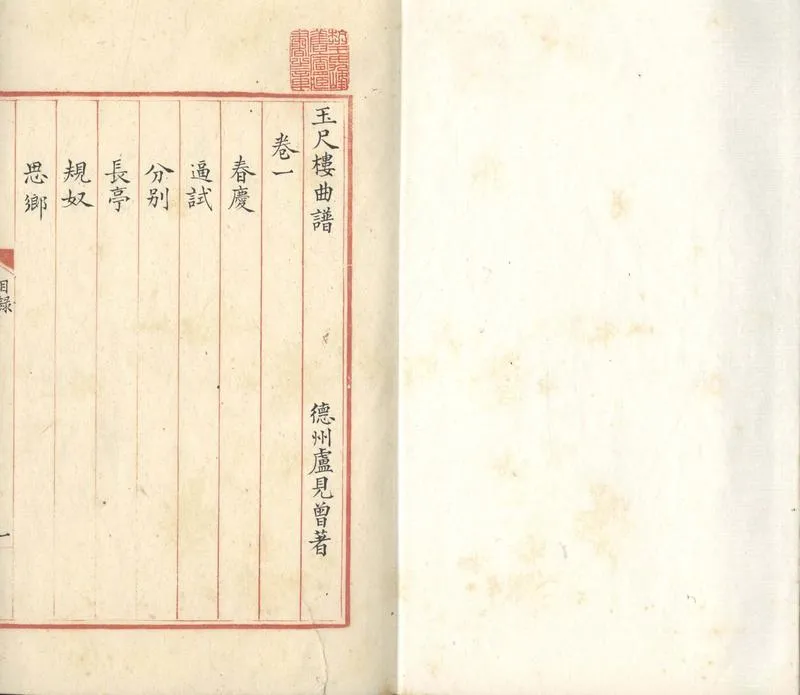 玉尺樓曲譜
德州盧見曾著
卷一
春慶
逼試
分别
長亭
規奴
思鄉
目録
一